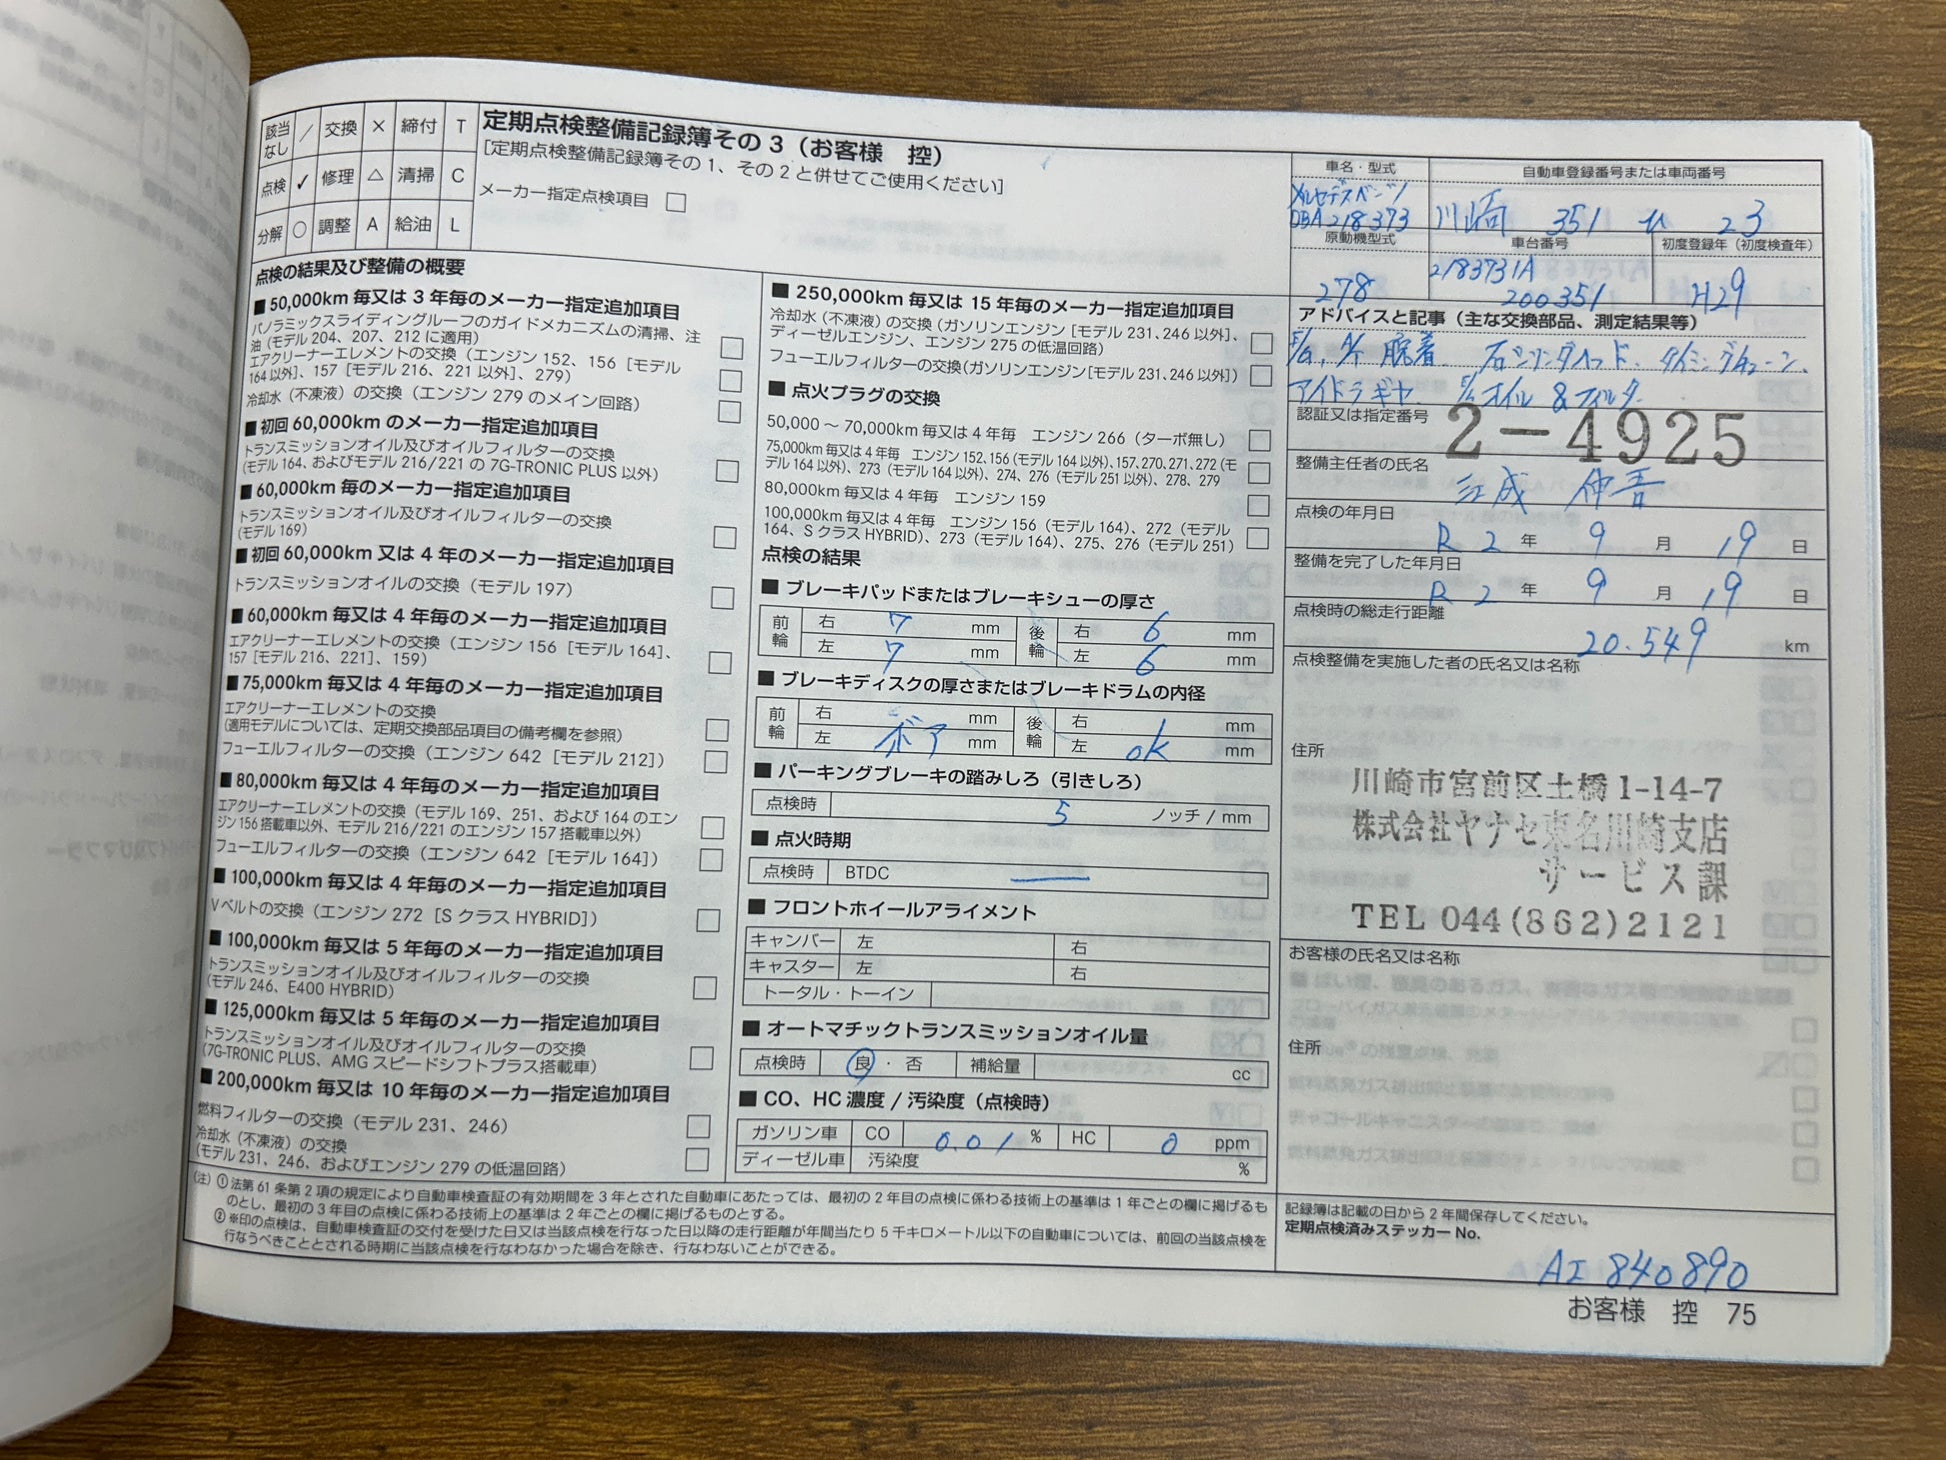 該当なし / 交換 × 締付 T
点検 ✓ 修理 △ 清掃 C
分解 ○ 調整 A 給油 L
定期点検整備記録簿その3（お客様 控）
[定期点検整備記録簿その1、その2と併せてご使用ください]
メーカー指定点検項目 □
点検の結果及び整備の概要
■ 50,000km 毎又は 3 年毎のメーカー指定追加項目
パノラミックスライディングルーフのガイドメカニズムの清掃、注油（モデル 204、207、212 に適用）
エアクリーナーエレメントの交換（エンジン 152、156［モデル 164 以外］、157［モデル 216、221 以外］、279）
冷却水（不凍液）の交換（エンジン 279 のメイン回路）
■ 初回 60,000km のメーカー指定追加項目
トランスミッションオイル及びオイルフィルターの交換
（モデル 164、およびモデル 216/221 の 7G-TRONIC PLUS 以外）
■ 60,000km 毎のメーカー指定追加項目
トランスミッションオイル及びオイルフィルターの交換
（モデル 169）
■ 初回 60,000km 又は 4 年のメーカー指定追加項目
トランスミッションオイルの交換（モデル 197）
■ 60,000km 毎又は 4 年毎のメーカー指定追加項目
エアクリーナーエレメントの交換（エンジン 156［モデル 164］、157［モデル 216、221］、159）
■ 75,000km 毎又は 4 年毎のメーカー指定追加項目
エアクリーナーエレメントの交換
（適用モデルについては、定期交換部品項目の備考欄を参照）
フューエルフィルターの交換（エンジン 642［モデル 212］）
■ 80,000km 毎又は 4 年毎のメーカー指定追加項目
エアクリーナーエレメントの交換（モデル 169、251、および 164 のエンジン 156 搭載車以外、モデル 216/221 のエンジン 157 搭載車以外）
フューエルフィルターの交換（エンジン 642［モデル 164］）
■ 100,000km 毎又は 4 年毎のメーカー指定追加項目
Vベルトの交換（エンジン 272［S クラス HYBRID］）
■ 100,000km 毎又は 5 年毎のメーカー指定追加項目
トランスミッションオイル及びオイルフィルターの交換
（モデル 246、E400 HYBRID）
■ 125,000km 毎又は 5 年毎のメーカー指定追加項目
トランスミッションオイル及びオイルフィルターの交換
（7G-TRONIC PLUS、AMG スピードシフトプラス搭載車）
■ 200,000km 毎又は 10 年毎のメーカー指定追加項目
燃料フィルターの交換（モデル 231、246）
冷却水（不凍液）の交換
（モデル 231、246、およびエンジン 279 の低温回路）
■ 250,000km 毎又は 15 年毎のメーカー指定追加項目
冷却水（不凍液）の交換（ガソリンエンジン［モデル 231、246 以外］、ディーゼルエンジン、エンジン 275 の低温回路）
フューエルフィルターの交換（ガソリンエンジン［モデル 231、246 以外］）
■ 点火プラグの交換
50,000 ～ 70,000km 毎又は 4 年毎 エンジン 266（ターボ無し）
75,000km 毎又は 4 年毎 エンジン 152、156（モデル 164 以外）、157、270、271、272（モデル 164 以外）、273（モデル 164 以外）、274、276（モデル 251 以外）、278、279
80,000km 毎又は 4 年毎 エンジン 159
100,000km 毎又は 4 年毎 エンジン 156（モデル 164）、272（モデル 164、S クラス HYBRID）、273（モデル 164）、275、276（モデル 251）
点検の結果
■ ブレーキパッドまたはブレーキシューの厚さ
前輪 右 7 mm 後輪 右 6 mm
左 7 mm 左 6 mm
■ ブレーキディスクの厚さまたはブレーキドラムの内径
前輪 右 mm 後輪 右 mm
左 mm 左 ok mm
■ パーキングブレーキの踏みしろ（引きしろ）
点検時 5 ノッチ / mm
■ 点火時期
点検時 BTDC
■ フロントホイールアライメント
キャンバー 左 右
キャスター 左 右
トータル・トーイン
■ オートマチックトランスミッションオイル量
点検時 良 ・ 否 補給量 cc
■ CO、HC 濃度 / 汚染度（点検時）
ガソリン車 CO 0.01 % HC 0 ppm
ディーゼル車 汚染度 %
（注）① 法第 61 条第 2 項の規定により自動車検査証の有効期間を 3 年とされた自動車にあたっては、最初の 2 年目の点検に係わる技術上の基準は 1 年ごとの欄に掲げるものとし、最初の 3 年目の点検に係わる技術上の基準は 2 年ごとの欄に掲げるものとする。
② ※印の点検は、自動車検査証の交付を受けた日又は当該点検を行なった日以降の走行距離が年間当たり 5 千キロメートル以下の自動車については、前回の当該点検を行なうべきこととされる時期に当該点検を行なわなかった場合を除き、行なわないことができる。
車名・型式
メルセデスベンツ
DBA218373
自動車登録番号または車両番号
川崎 351 ひ 23
原動機型式
278
車台番号
2183731A
200351
初度登録年（初度検査年）
H29
アドバイスと記事（主な交換部品、測定結果等）
E/G, A/T 脱着 右シリンダヘッド、タイミングチェーン、
アイドラギヤ、 E/Gオイル & フィルタ
認証又は指定番号
2-4925
整備主任者の氏名
伸吾
点検の年月日
R 2 年 9 月 19 日
整備を完了した年月日
R 2 年 9 月 19 日
点検時の総走行距離
20.549 km
点検整備を実施した者の氏名又は名称
住所
川崎市宮前区土橋1-14-7
株式会社ヤナセ東名川崎支店
サービス課
TEL 044(862)2121
お客様の氏名又は名称
住所
記録簿は記載の日から 2 年間保存してください。
定期点検済みステッカー No.
AI 840890
お客様 控 75